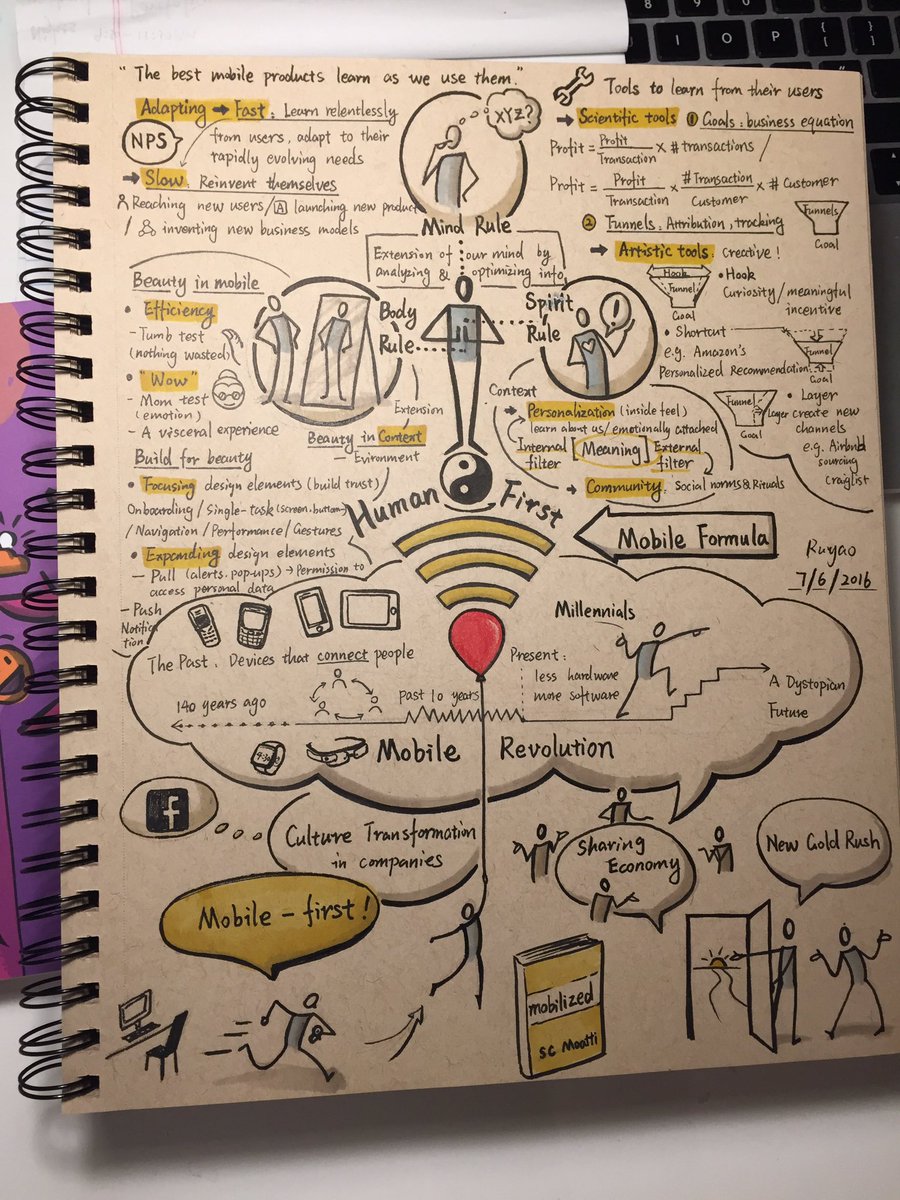 "The best mobile products learn as we use them."
Adapting → Fast: Learn relentlessly
from users, adapt to their
rapidly evolving needs
NPS
→ Slow: Reinvent themselves
Reaching new users / A launching new product
/ inventing new business models
XYZ?
Mind Rule
Extension of our mind by
analyzing & optimizing info
Tools to learn from their users
→ Scientific tools ① Goals: business equation
Profit = Profit/Transaction × # transactions /
Profit = Profit/Transaction × # Transaction/Customer × # Customer
② Funnels, Attribution, tracking
Funnels
Goal
→ Artistic tools: Creative!
Hook
Funnel
Goal
• Hook
Curiosity / meaningful
incentive
• Shortcut
e.g. Amazon's
Personalized Recommendation
Funnel
Goal
Funnel
layer
Goal
• Layer
create new
channels
e.g. Airbnb
sourcing
craiglist
Beauty in mobile
• Efficiency
- Tumb test
(nothing wasted)
• "Wow"
- Mom test
(emotion)
- A visceral experience
Body
Rule
Spirit
Rule
!
Extension
Beauty in Context
- Evironment
Build for beauty
• Focusing design elements (build trust)
Onboarding / Single-task (screen, button)
/ Navigation / Performance / Gestures
• Expanding design elements
- Pull (alerts, pop-ups) → Permission to
access personal data
- Push
Notifica
tion
Context
→ Personalization (inside feel)
learn about us / emotionally attached
Internal
filter
Meaning
External
filter
→ Community: Social norms & Rituals
Human First
Mobile Formula
Ruyao
7/6/2016
Millennials
The Past: Devices that connect people
Present:
less hardware
more software
140 years ago
Past 10 years
A Dystopian
Future
Mobile Revolution
f
Culture Transformation
in companies
Mobile - first!
Sharing
Economy
New Gold Rush
mobilized
SC Moatti
8
9
0
I
O
P
{
[
}
]